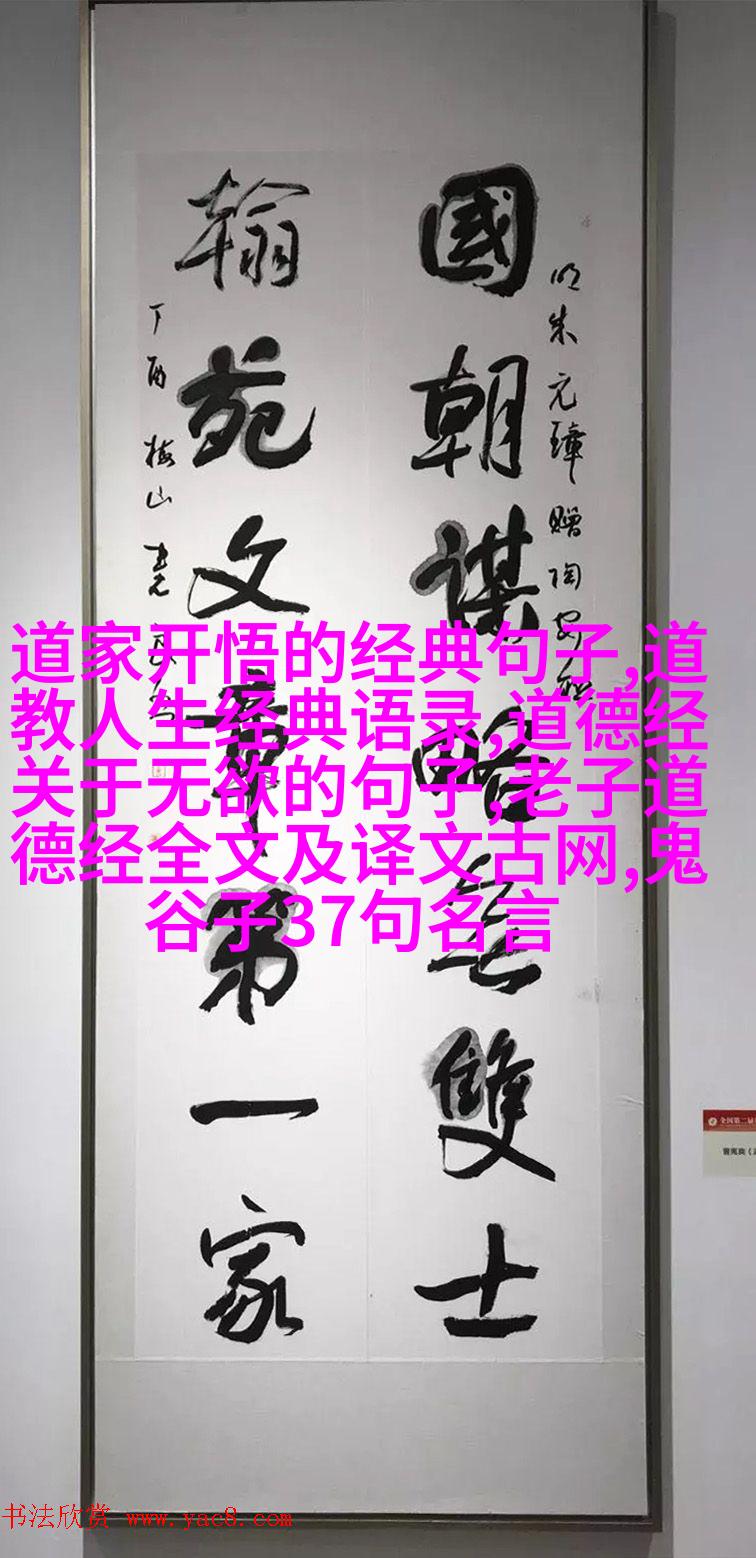 明朱元璋赠陶安联
國朝謀略無雙士
翰苑文章第一家
丁酉 梅山
道家开悟的经典句子,道
教人生经典语录,道德经
关于无欲的句子,老子道
德经全文及译文古网,鬼
谷子37句名言
全国第二届
书法欣赏 www.yac8.com